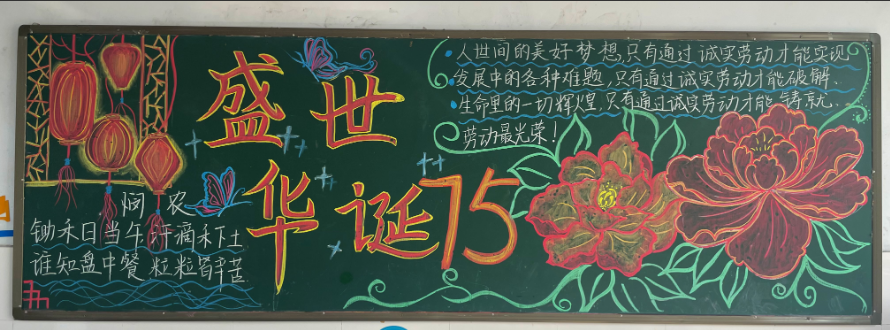 盛世
华诞75
人世间的美好梦想,只有通过诚实劳动才能实现
发展中的各种难题,只有通过诚实劳动才能破解.
生命里的一切辉煌,只有通过诚实劳动才能铸就.
劳动最光荣!
悯农
锄禾日当午 汗滴禾下土
谁知盘中餐 粒粒皆辛苦